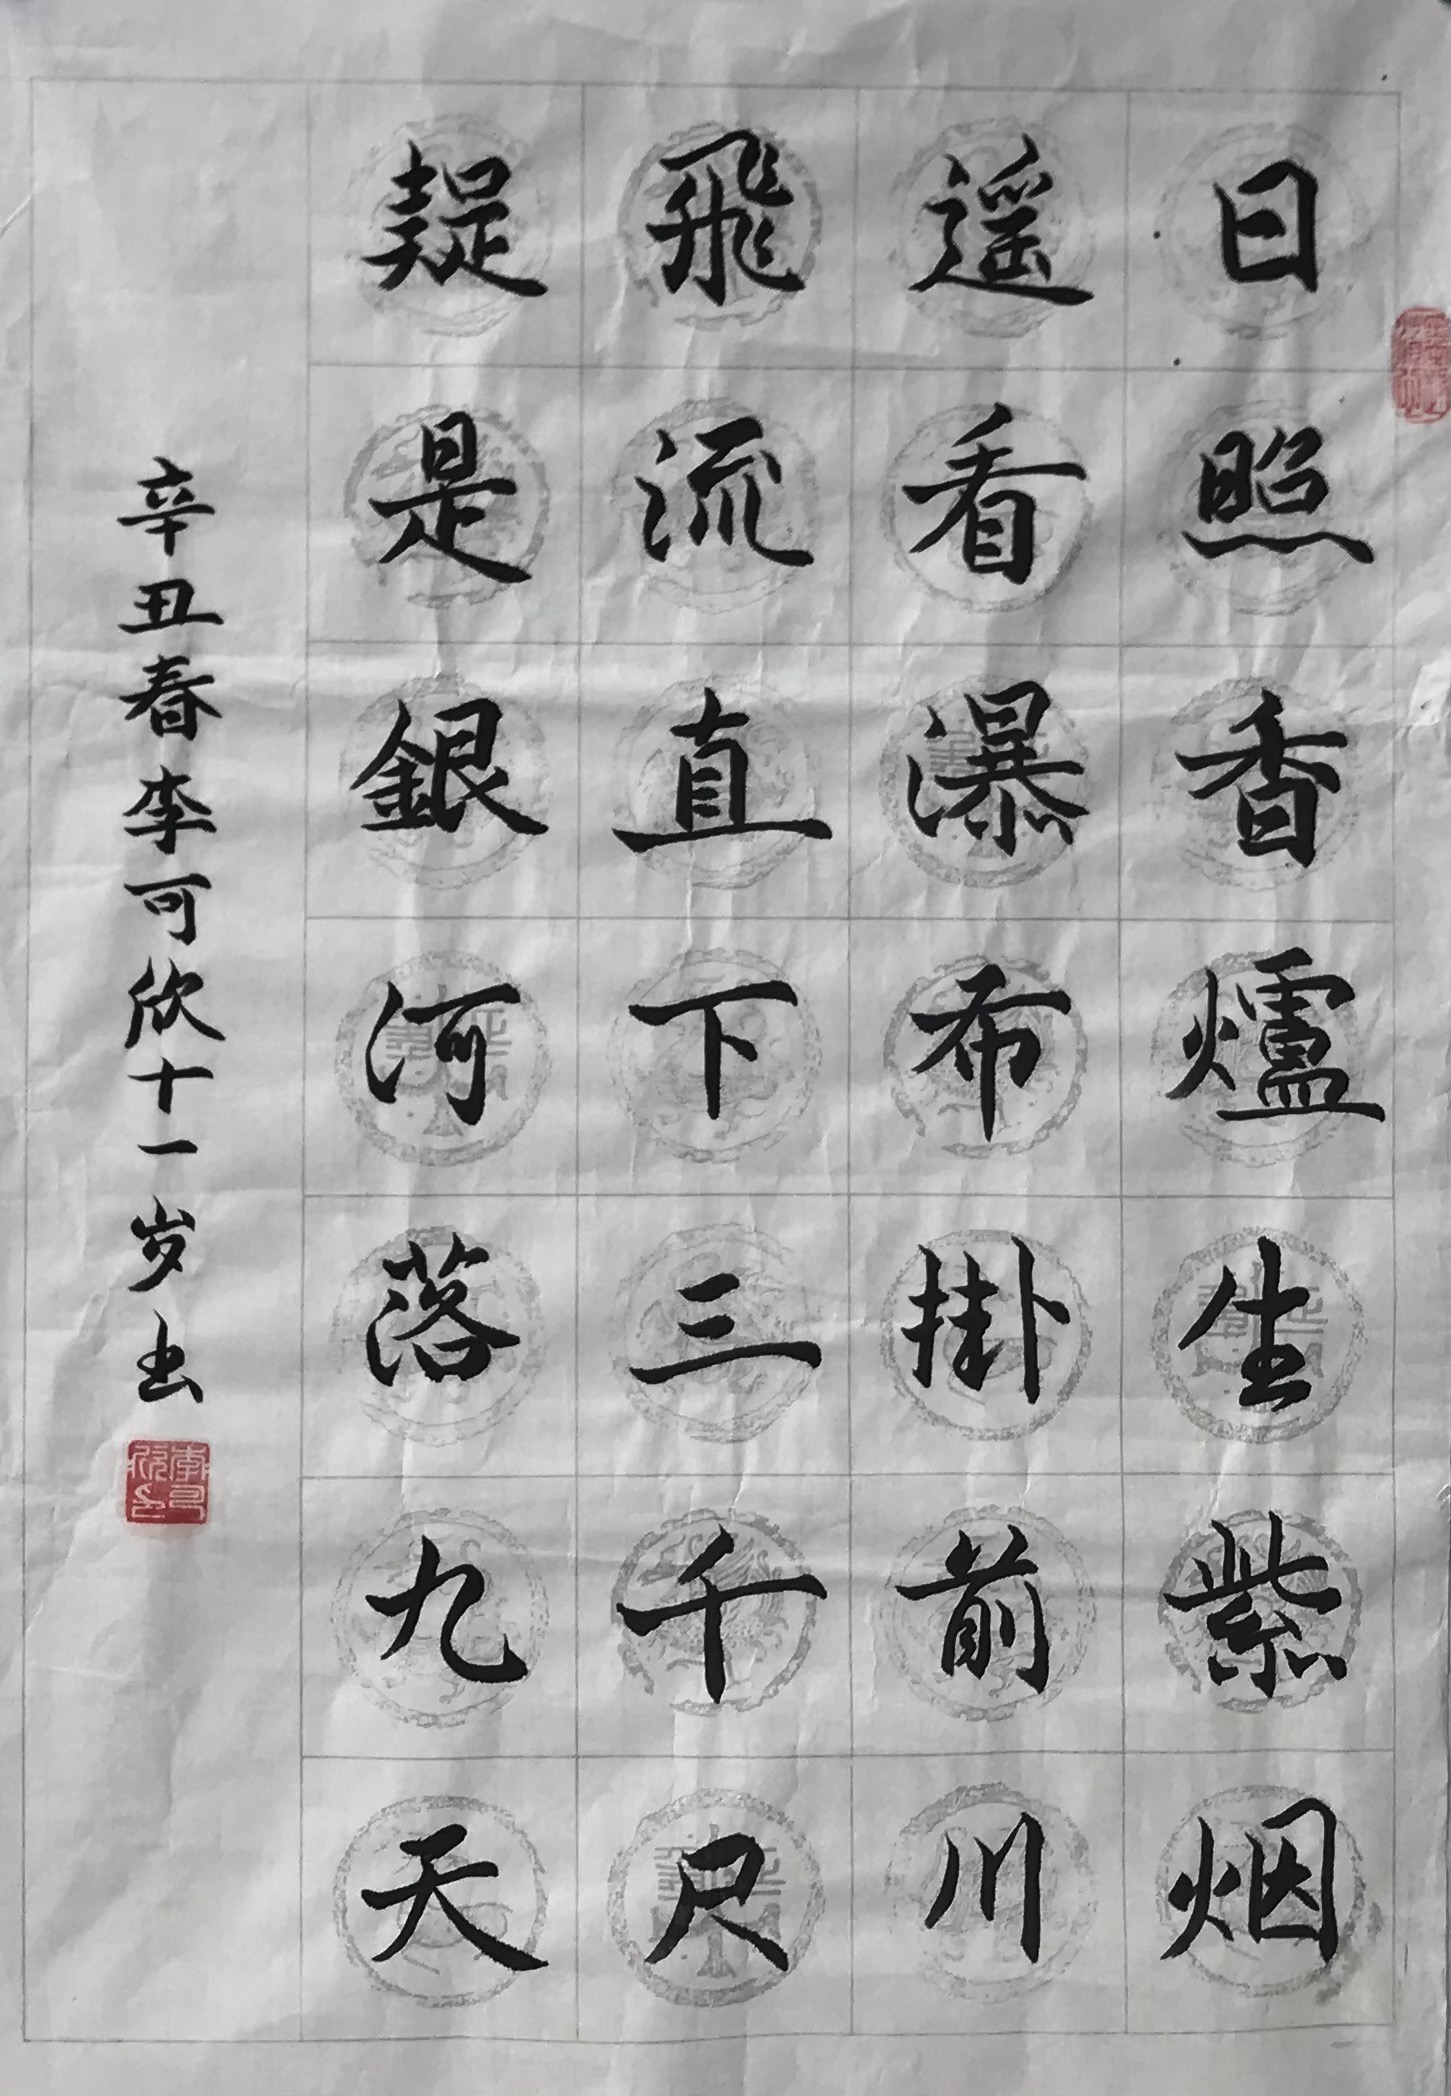 日照香爐生紫烟
遥看瀑布掛前川
飛流直下三千尺
疑是銀河落九天
辛丑春李可欣十一岁书